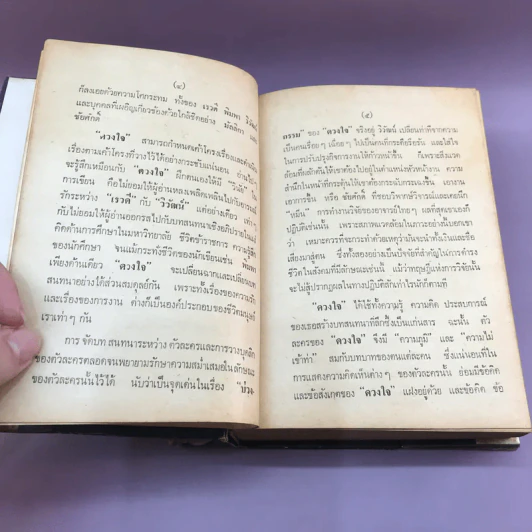 (๔)
ก็ลงเอยด้วยความโศกระทม ทั้งของ เรวดี พิมพา วิวัฒน์
และบุคคลที่เผอิญเกี่ยวข้องด้วยใกล้ชิดอย่าง มัลลิกา และ
ชัยศักดิ์
"ดวงใจ" สามารถกำหนดเค้าโครงเรื่องและดำเนิน
เรื่องตามเค้าโครงที่วางไว้ได้อย่างกระชับแน่นอน
จะรู้สึกเหมือนกับ "ดวงใจ" ฝึกตนเองให้มี
การเขียน ก็ไม่ยอมให้ผู้อ่านหลงเพลิดเพลินไปกับอารมณ์
รักระหว่าง "เรวดี" กับ "วิวัฒน์" แต่อย่างเดียว เท่า ๆ
กับไม่ยอมให้ผู้อ่านออกรสไปกับบทสนทนาเชิงอภิปรายในแง่
คิดด้านการศึกษาในมหาวิทยาลัย ชีวิตข้าราชการ ความรู้สึก
ของนักศึกษา จนแม้กระทั่งชีวิตของนักเขียนเช่น พิมพา
เพียงด้านเดียว "ดวงใจ" จะเปลี่ยนฉากและเปลี่ยนบท
สนทนาอย่างได้ส่วนสมดุลย์กัน เพราะทั้งเรื่องของความรัก
และเรื่องของการงาน ต่างก็เป็นองค์ประกอบของชีวิตมนุษย์
เราเท่า ๆ กัน
การ จัดบท สนทนาระหว่าง ตัวละครและการวางบุคลิก
ของตัวละครตลอดจนพยายามรักษาความสม่ำเสมอในลักษณะ
ของตัวละครนั้นไว้ได้ นับว่าเป็นจุดเด่นในเรื่อง "บ่วง
(๕)
กรรม" ของ "ดวงใจ" จริงอยู่ วิวัฒน์ เปลี่ยนท่าทีจากความ
เป็นคนเรื่อย ๆ เฉื่อย ๆ ไปเป็นคนที่กระตือรือร้น และใส่ใจ
ในการปรับปรุงกิจการงานให้ก้าวหน้าขึ้น ก็เพราะสิ่งแวด
ล้อมที่ผลักดันให้เขาต้องไปอยู่ในตำแหน่งหัวหน้างาน ความ
สำนึกในหน้าที่กระตุ้นให้เขาต้องกระฉับกระเฉงขึ้น เอางาน
เอาการขึ้น หรือ ชัยศักดิ์ ที่ชอบวิพากษ์วิจารณ์และดูเหมือน
"หมั่น" การทำงานวิจัยของอาจารย์ไทยๆ ผลที่สุดเขาเองก็
ปฏิบัติเช่นนั้น เพราะสภาพแวดล้อมในภาวะอย่างนั้นบอกเขา
ว่า เหมาะควรที่จะกระทำด้วยเหตุว่ามันจะนำทั้งเงินและชื่อ
เสียงมาสู่ตน ซึ่งทั้งสองอย่างเป็นปัจจัยที่สำคัญในการดำรง
ชีวิตในสังคมที่มีลักษณะเช่นนั้น แม้ว่าทฤษฎีแห่งการวิจัยนั้น
จะไม่สู้ปรากฏผลในทางปฏิบัติสักเท่าไรนักก็ตามที
"ดวงใจ" ได้ใช้ทั้งความรู้ ความคิด ประสบการณ์
ของเธอสร้างบทสนทนาที่ลึกซึ้งเป็นแก่นสาร ฉะนั้น ตัว
ละครของ "ดวงใจ" จึงมี "ความภูมิ" และ "ความไม่
เข้าท่า" สมกับบทบาทของคนแต่ละคน ซึ่งแน่นอนที่ใน
การแสดงความคิดเห็นต่างๆ ของตัวละครนั้น ย่อมมีข้อคิด
และข้อสังเกตของ "ดวงใจ" แฝงอยู่ด้วย และข้อคิด ข้อ